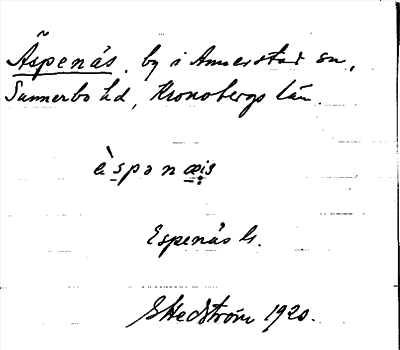 Äspenäs, by i Annerstad sn,
Sunnerbo hd, Kronobergs län.
èspənæis
Espenäs G.
G Hedström 1920.